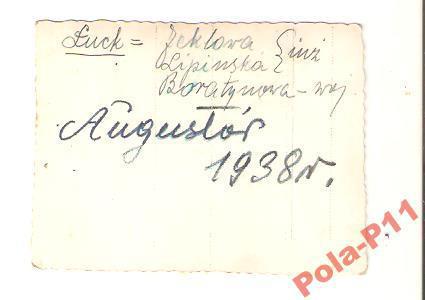 Łuck = Jeklowa } inż
Lipińska
Boratynowa - woj
Augustów
1938 r.
Pola-P11